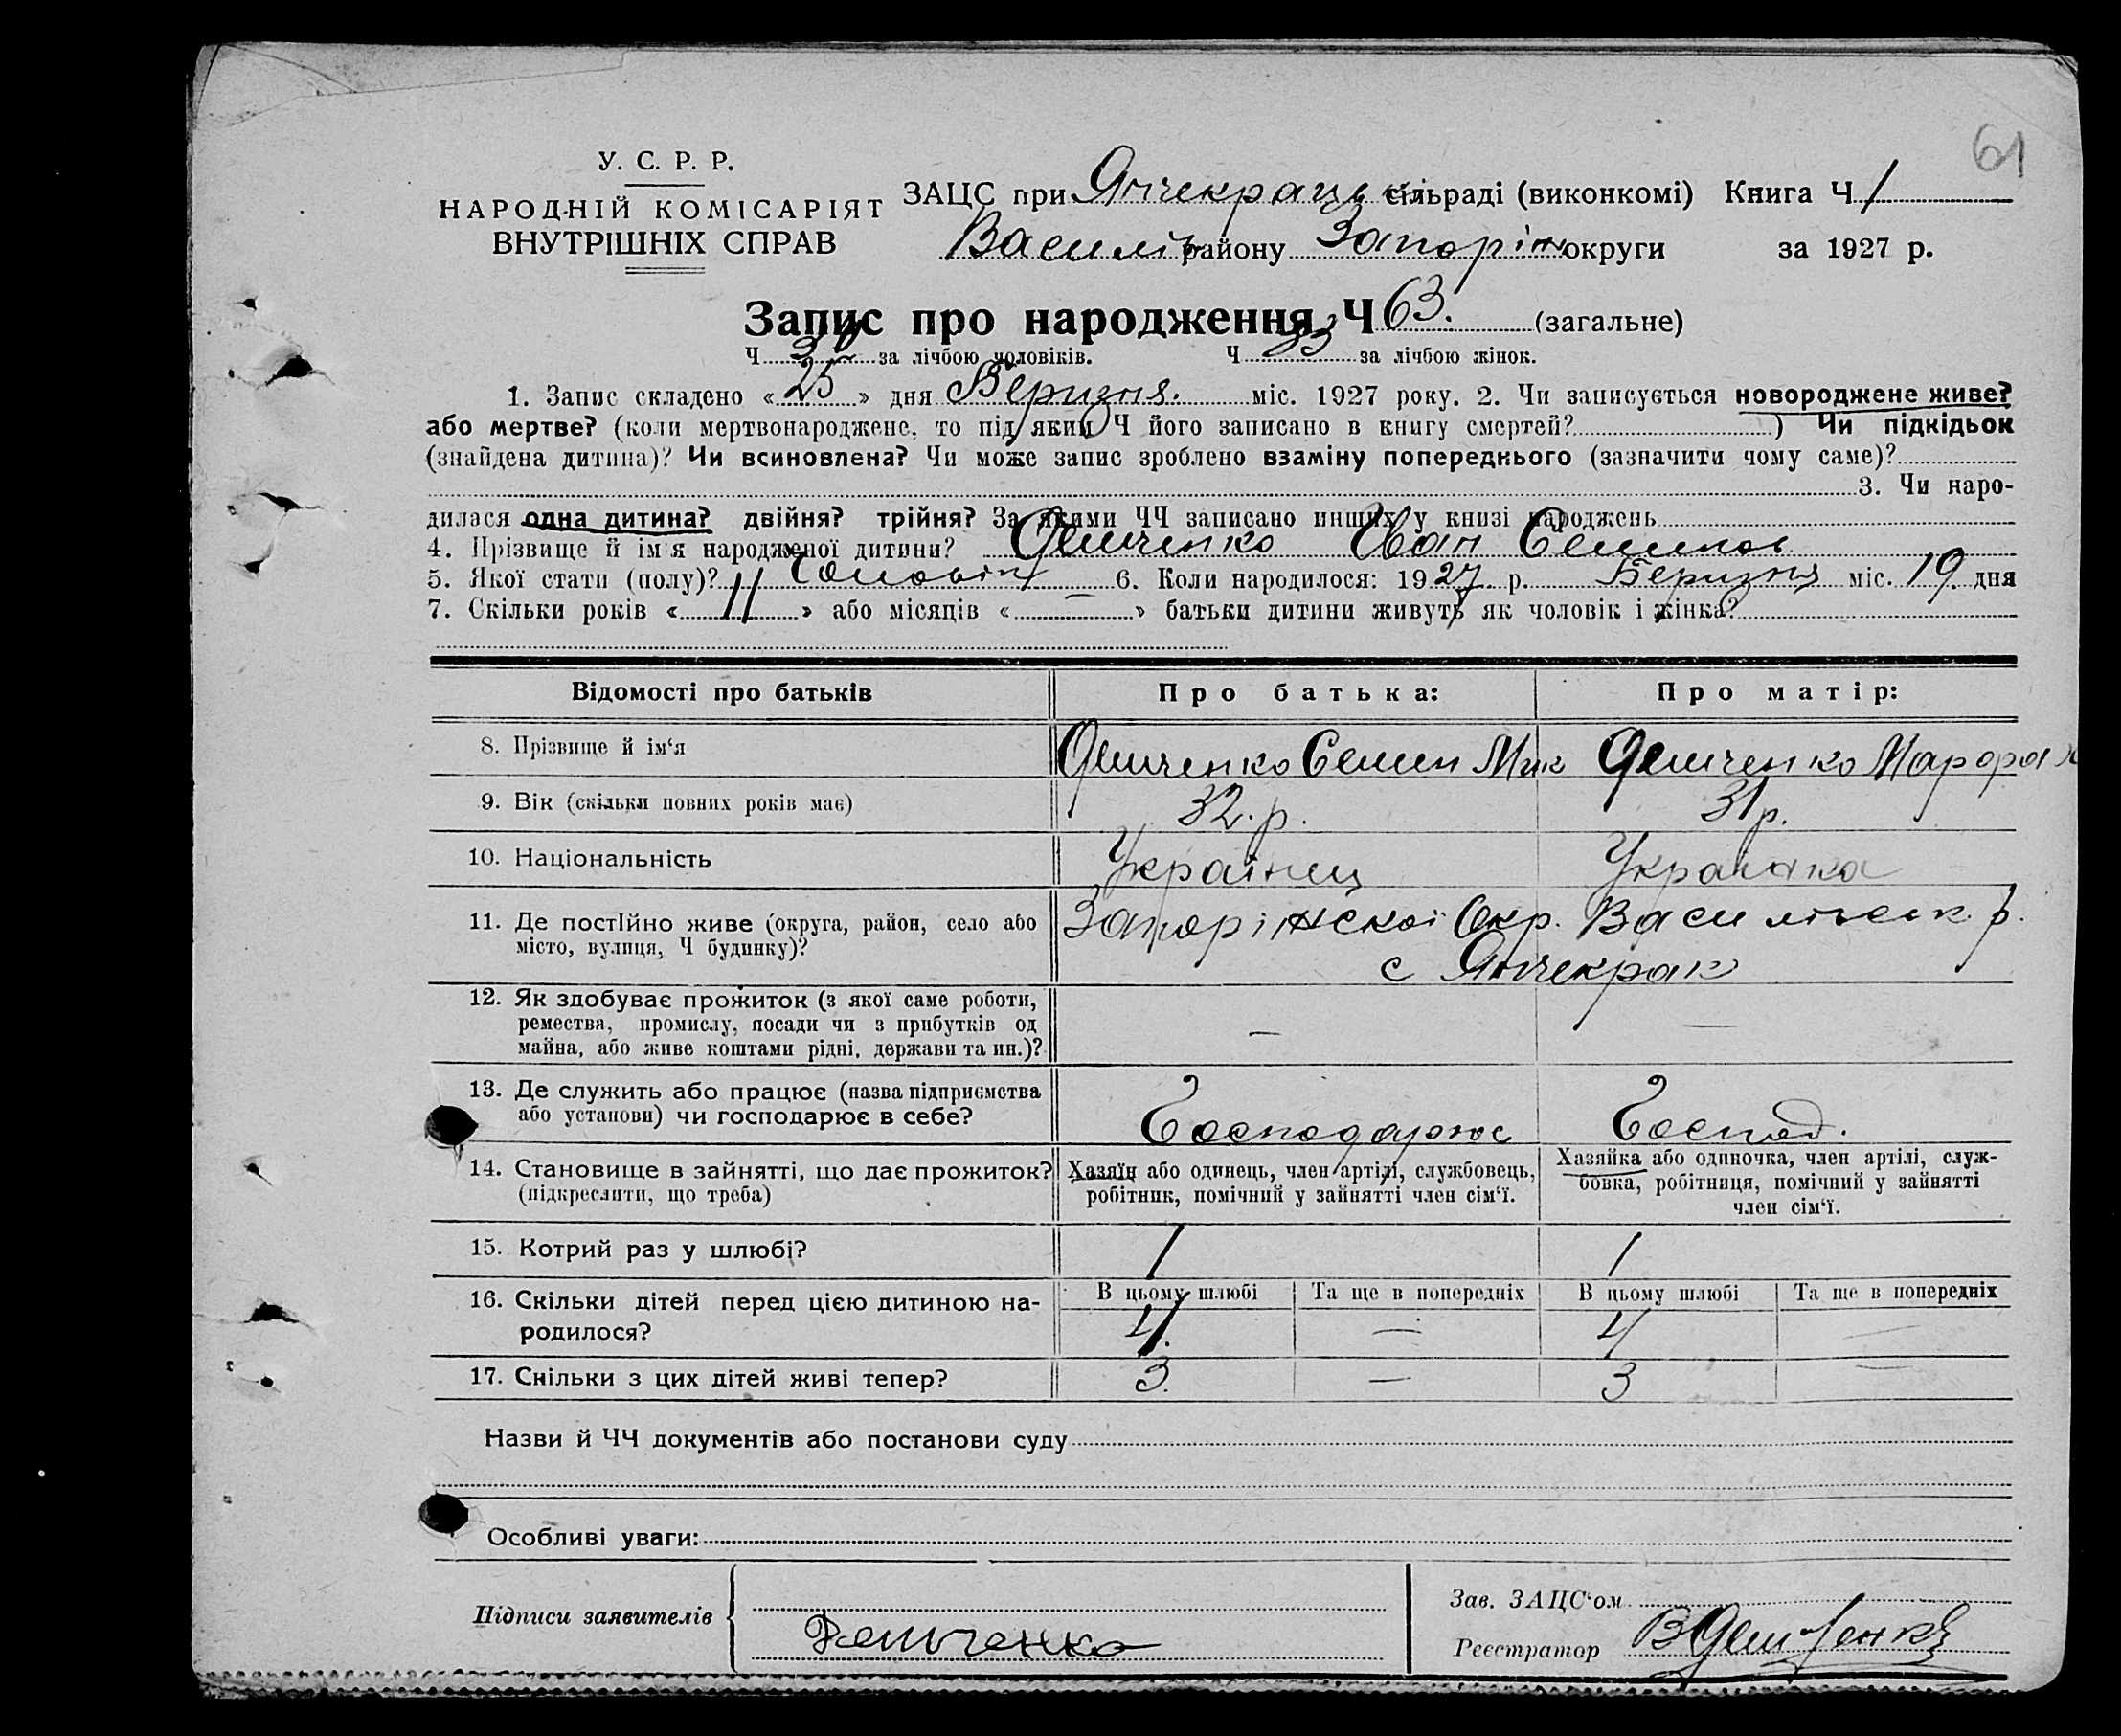 61
У. С. Р. Р.
НАРОДНІЙ КОМІСАРІЯТ
ВНУТРІШНІХ СПРАВ
ЗАЦС при Янчекрацьк сільраді (виконкомі) Книга Ч 1
Василів району Запоріж округи за 1927 р.
Запис про народження Ч 63. (загальне)
Ч 30 за лічбою чоловіків. Ч 33 за лічбою жінок.
1. Запис складено «25» дня Беризня. міс. 1927 року. 2. Чи записується новороджене живе?
або мертве? (коли мертвонароджене, то під яким Ч його записано в книгу смертей? ) Чи підкідьок
(знайдена дитина)? Чи всиновлена? Чи може запис зроблено взаміну попереднього (зазначити чому саме)?
3. Чи наро-
дилася одна дитина? двійня? трійня? За якими ЧЧ записано инших у книзі народжень
4. Прізвище й ім'я народженої дитини? Демченко Иван Семинов
5. Якої стати (полу)? Чоловік 6. Коли народилося: 1927 р. Беризня міс. 19 дня
7. Скільки років « 11 » або місяців « — » батьки дитини живуть як чоловік і жінка?
Відомості про батьків Про батька: Про матір:
8. Прізвище й ім'я Демченко Семен Мик Демченко
9. Вік (скільки повних років має) 32.р. 31р.
10. Національність Українец Українка
11. Де постійно живе (округа, район, село або Запоріжскої Окр. Васильевск. р.
місто, вулиця, Ч будинку)? с Янчекрак
12. Як здобуває прожиток (з якої саме роботи,
ремества, промислу, посади чи з прибутків од — —
майна, або живе коштами рідні, держави та ин.)?
13. Де служить або працює (назва підприємства
або установи) чи господарює в себе? Господарює Господ.
14. Становище в зайнятті, що дає прожиток? Хазяїн або одинець, член артілі, службовець, Хазяйка або одиночка, член артілі, служ-
(підкреслити, що треба) робітник, помічний у зайнятті член сім'ї. бовка, робітниця, помічний у зайнятті
член сім'ї.
15. Котрий раз у шлюбі? 1 1
16. Скільки дітей перед цією дитиною на- В цьому шлюбі Та ще в попередніх В цьому шлюбі Та ще в попередніх
родилося? 4. — 4 —
17. Скільки з цих дітей живі тепер? 3. — 3 —
Назви й ЧЧ документів або постанови суду
Особливі уваги:
Підписи заявителів Демченко
Зав. ЗАЦС'ом
Реєстратор В Демченко